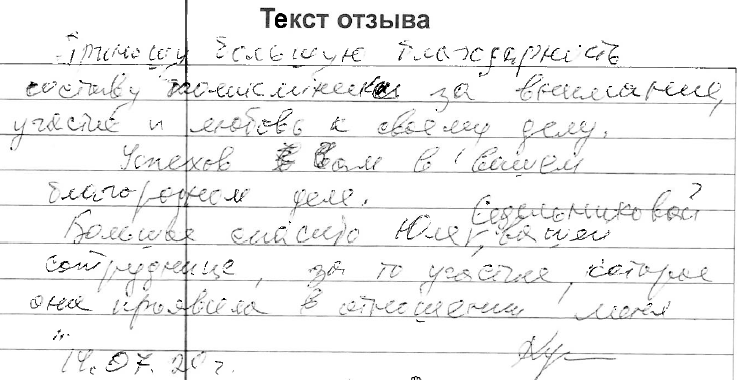 Текст отзыва
Приношу большую благодарность
составу поликлиники за внимание,
участие и любовь к своему делу.
Успехов Вам в вашем
благородном деле.
Седельниковой
Большое спасибо Юле, вашей
сотруднице, за то участие, которое
она проявила в отношении меня
14.07.20 г.